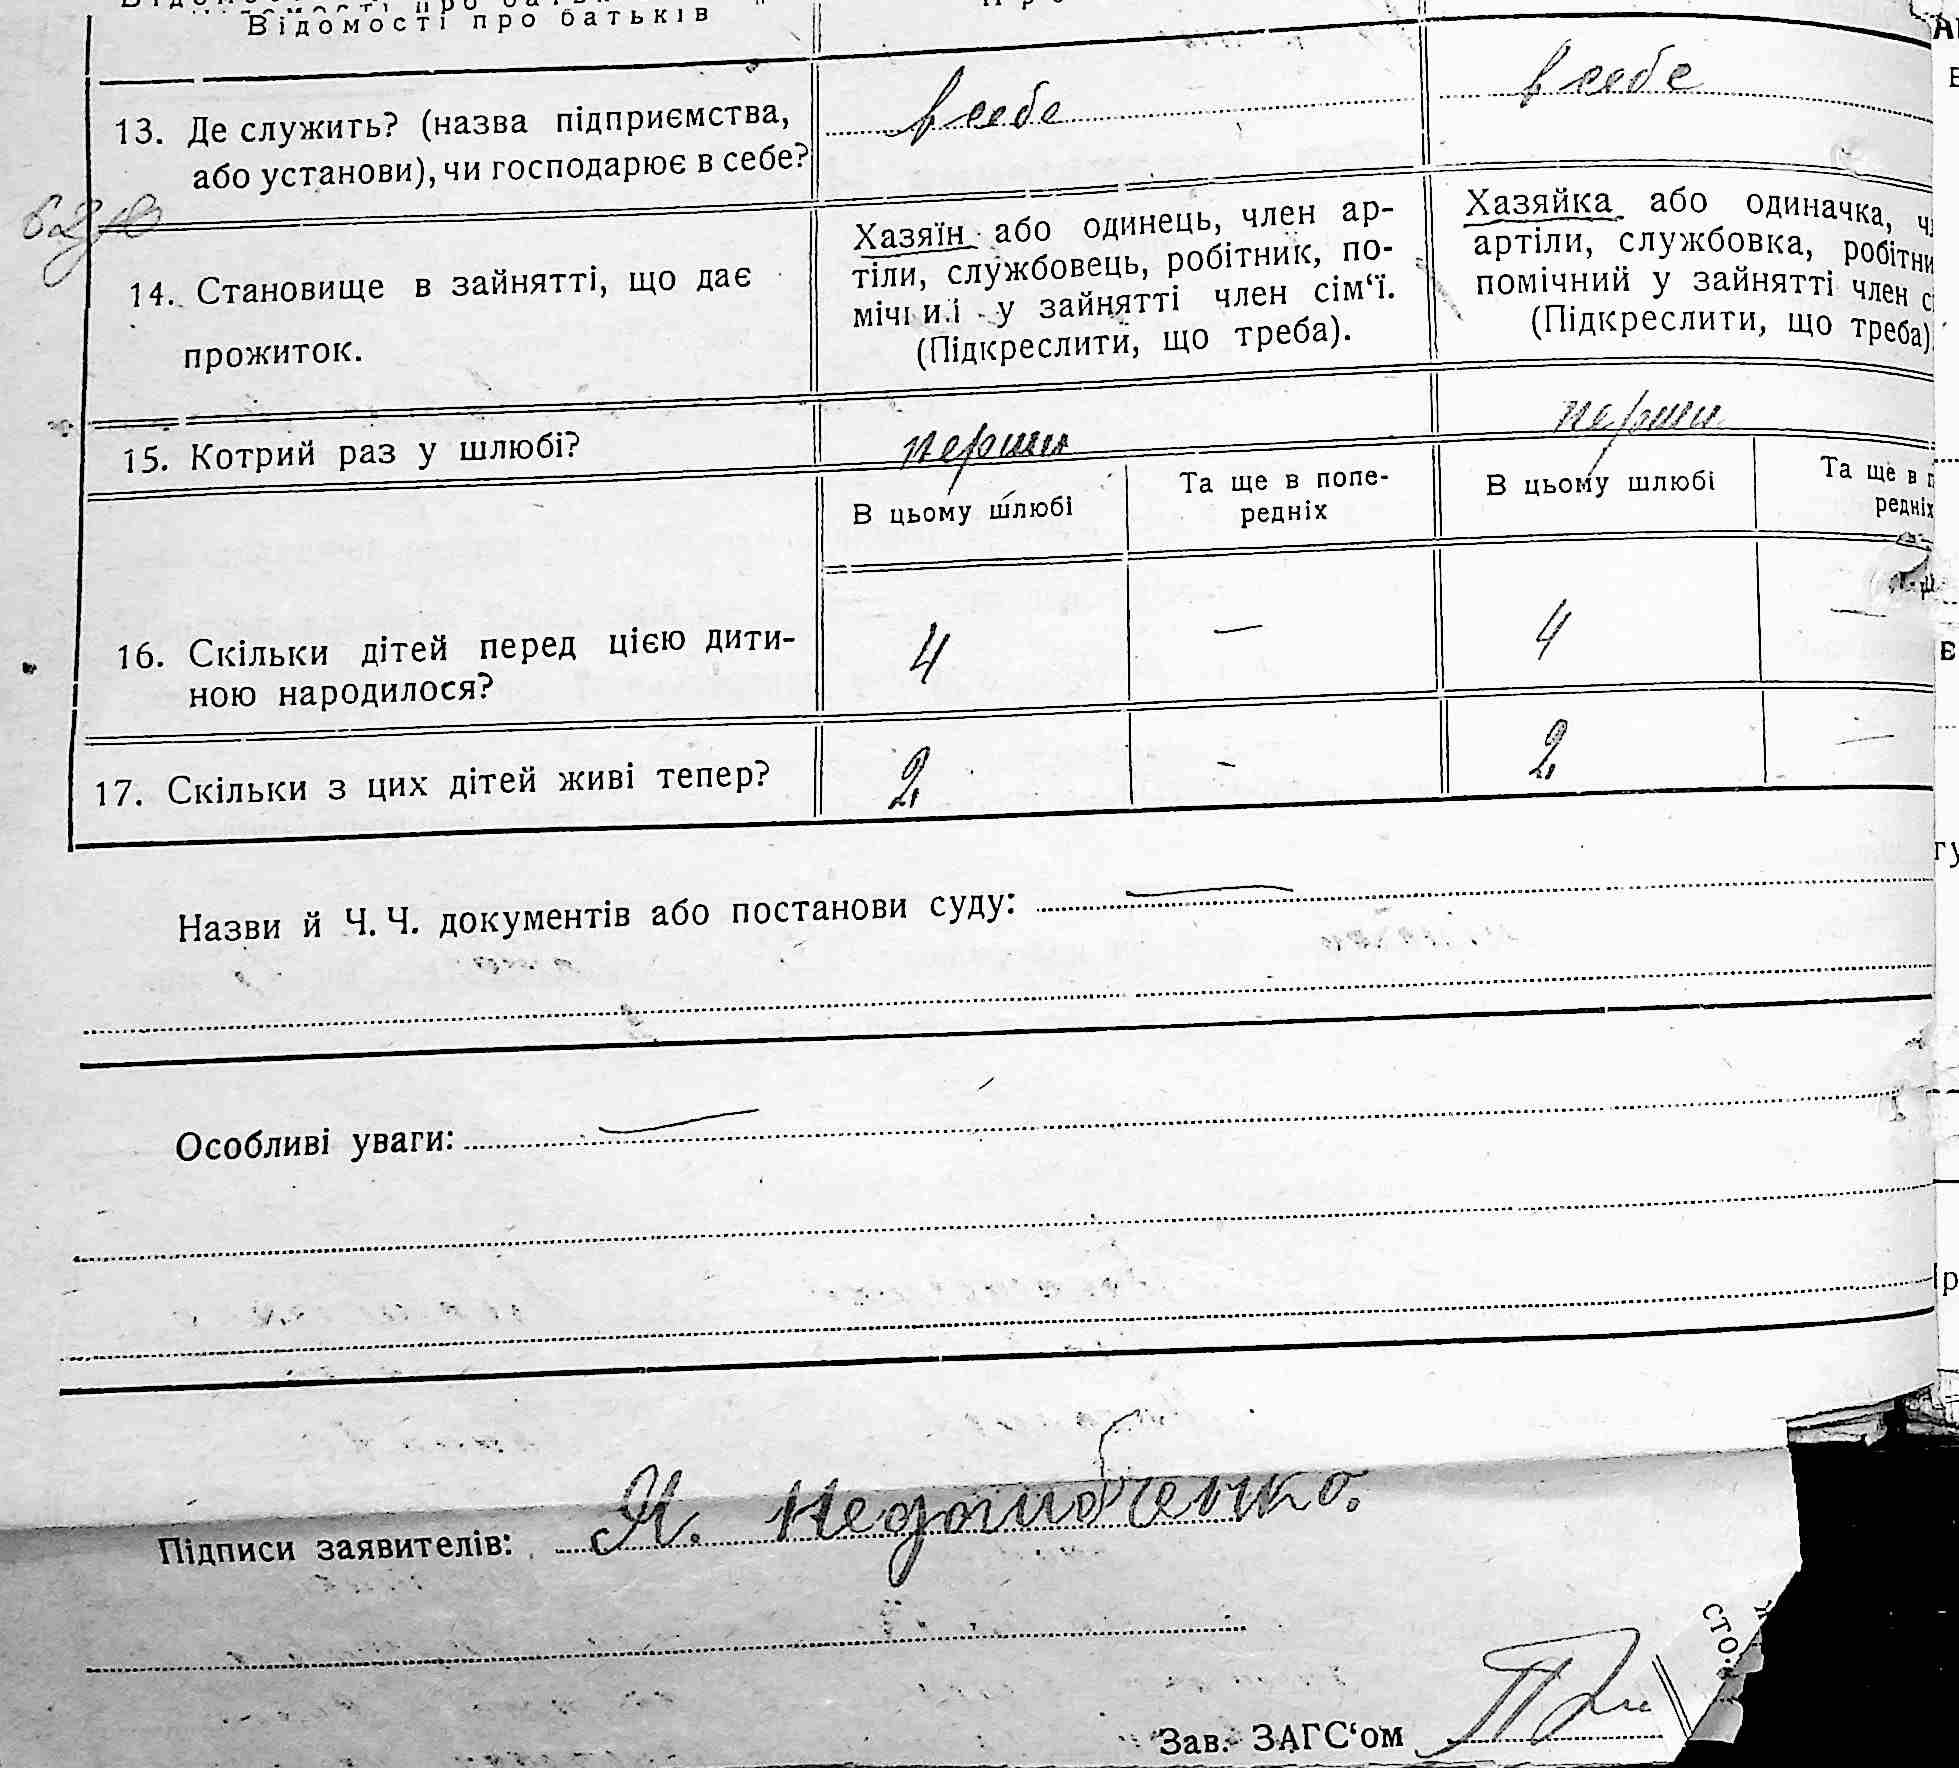 Відомості про батьків
13. Де служить? (назва підприємства, або установи), чи господарює в себе?
в себе
в себе
14. Становище в зайнятті, що дає прожиток.
Хазяїн або одинець, член ар-
тіли, службовець, робітник, по-
у зайнятті член сім‘ї.
(Підкреслити, що треба).
Хазяйка або одиначка,
артіли, службовка,
помічний у зайнятті член
(Підкреслити, що треба)
15. Котрий раз у шлюбі?
перши
перши
В цьому шлюбі
Та ще в попе-
редніх
В цьому шлюбі
Та ще в
редніх
16. Скільки дітей перед цією дити-
ною народилося?
4
—
4
—
17. Скільки з цих дітей живі тепер?
2
-
2
—
Назви й Ч. Ч. документів або постанови суду: —
Особливі уваги: —
Підписи заявителів:
Зав. ЗАГС‘ом